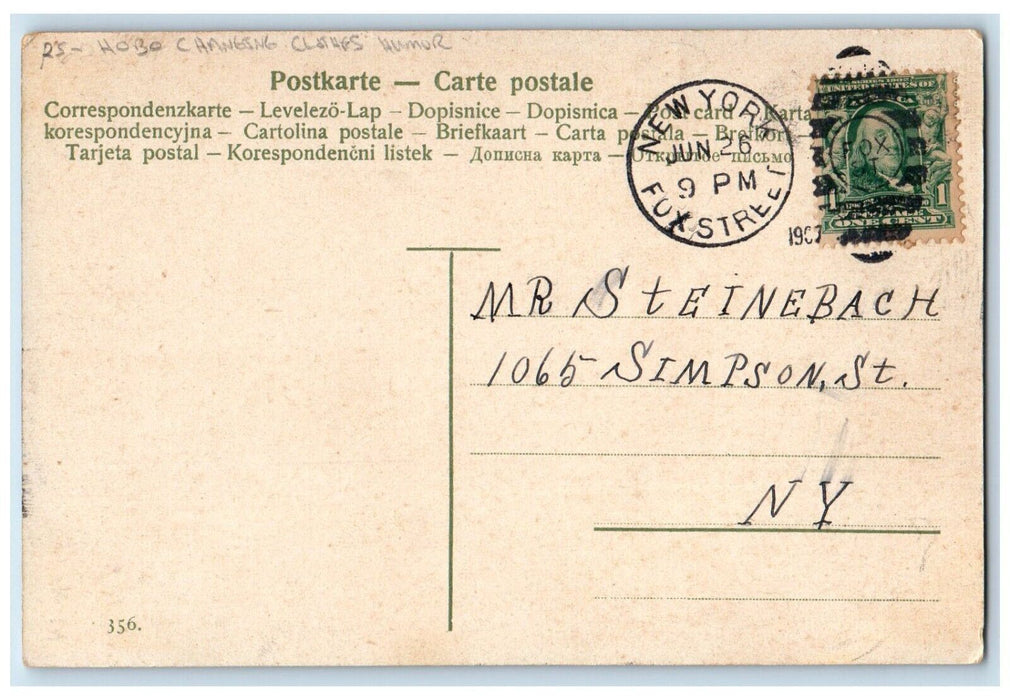 25- HOBO CHANGING CLOTHES HUMOR
Postkarte — Carte postale
Correspondenzkarte – Levelező-Lap – Dopisnice – Dopisnica – Post card – Karta
korespondencyjna – Cartolina postale – Briefkaart – Carta postala – Brefkort
Tarjeta postal – Korespondenčni listek – Дописна карта – Открытое письмо
NEW YORK
JUN 26
9 PM
FOX STREET
1907
SERIES 1902
UNITED STATES OF
FOX
1
1
ONE CENT
MR STEINEBACH
1065 SIMPSON, St.
NY
356.